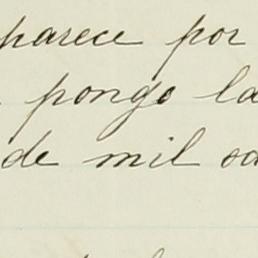 parece por
pongo la
de mil